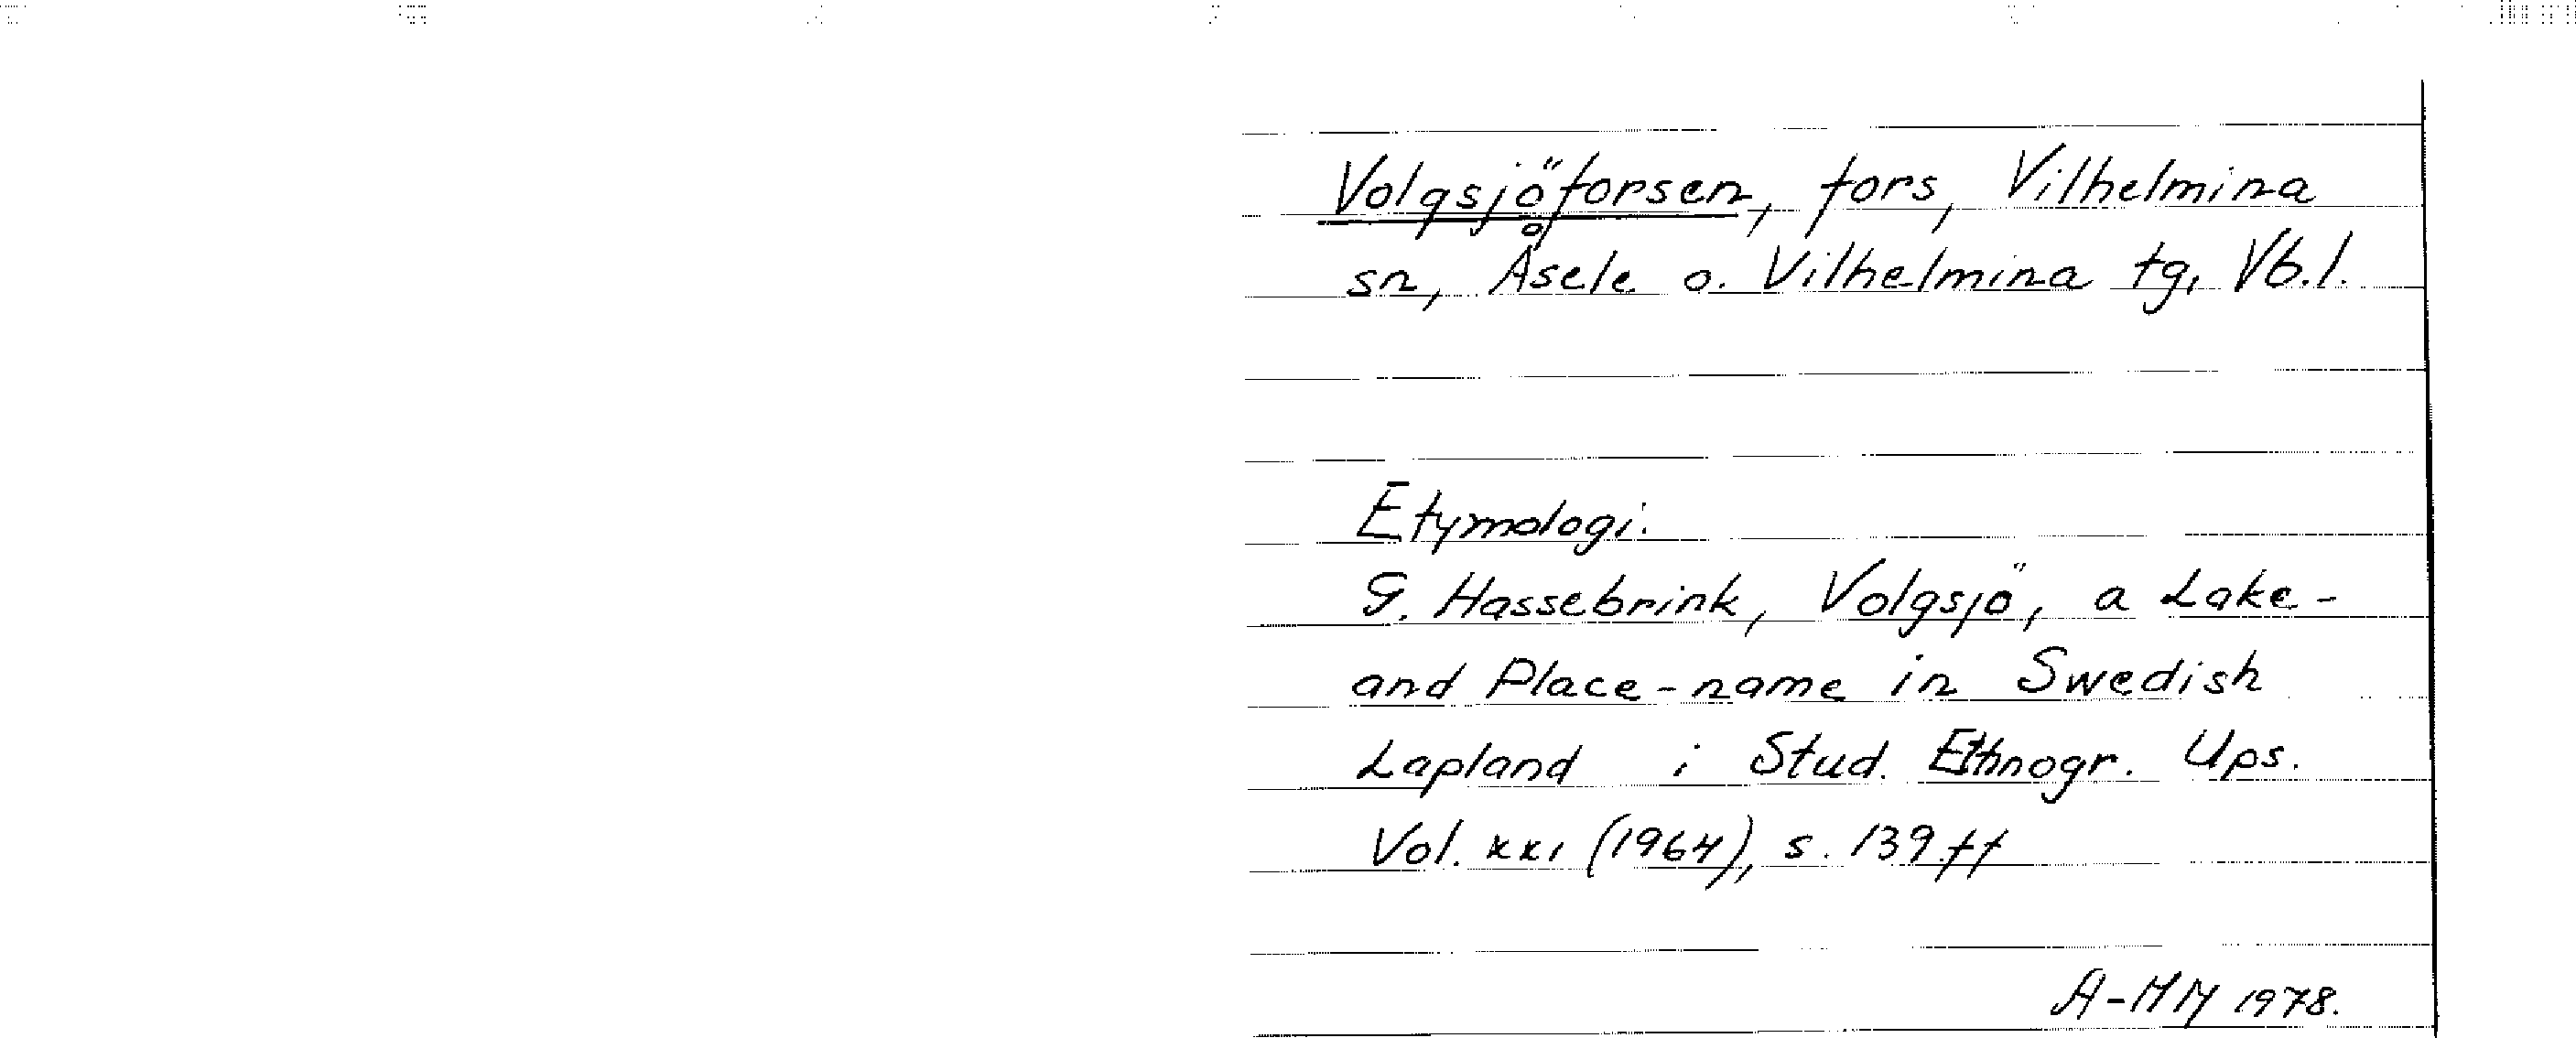 Volgsjöforsen, fors, Vilhelmina
sn, Åsele o. Vilhelmina tg, Vb.l.
Etymologi.
G. Hassebrink, Volgsjö, a Lake-
and Place-name in Swedish
Lapland i Stud. Ethnogr. Ups.
Vol. XXI (1964), s. 139 ff
A-MM 1978.